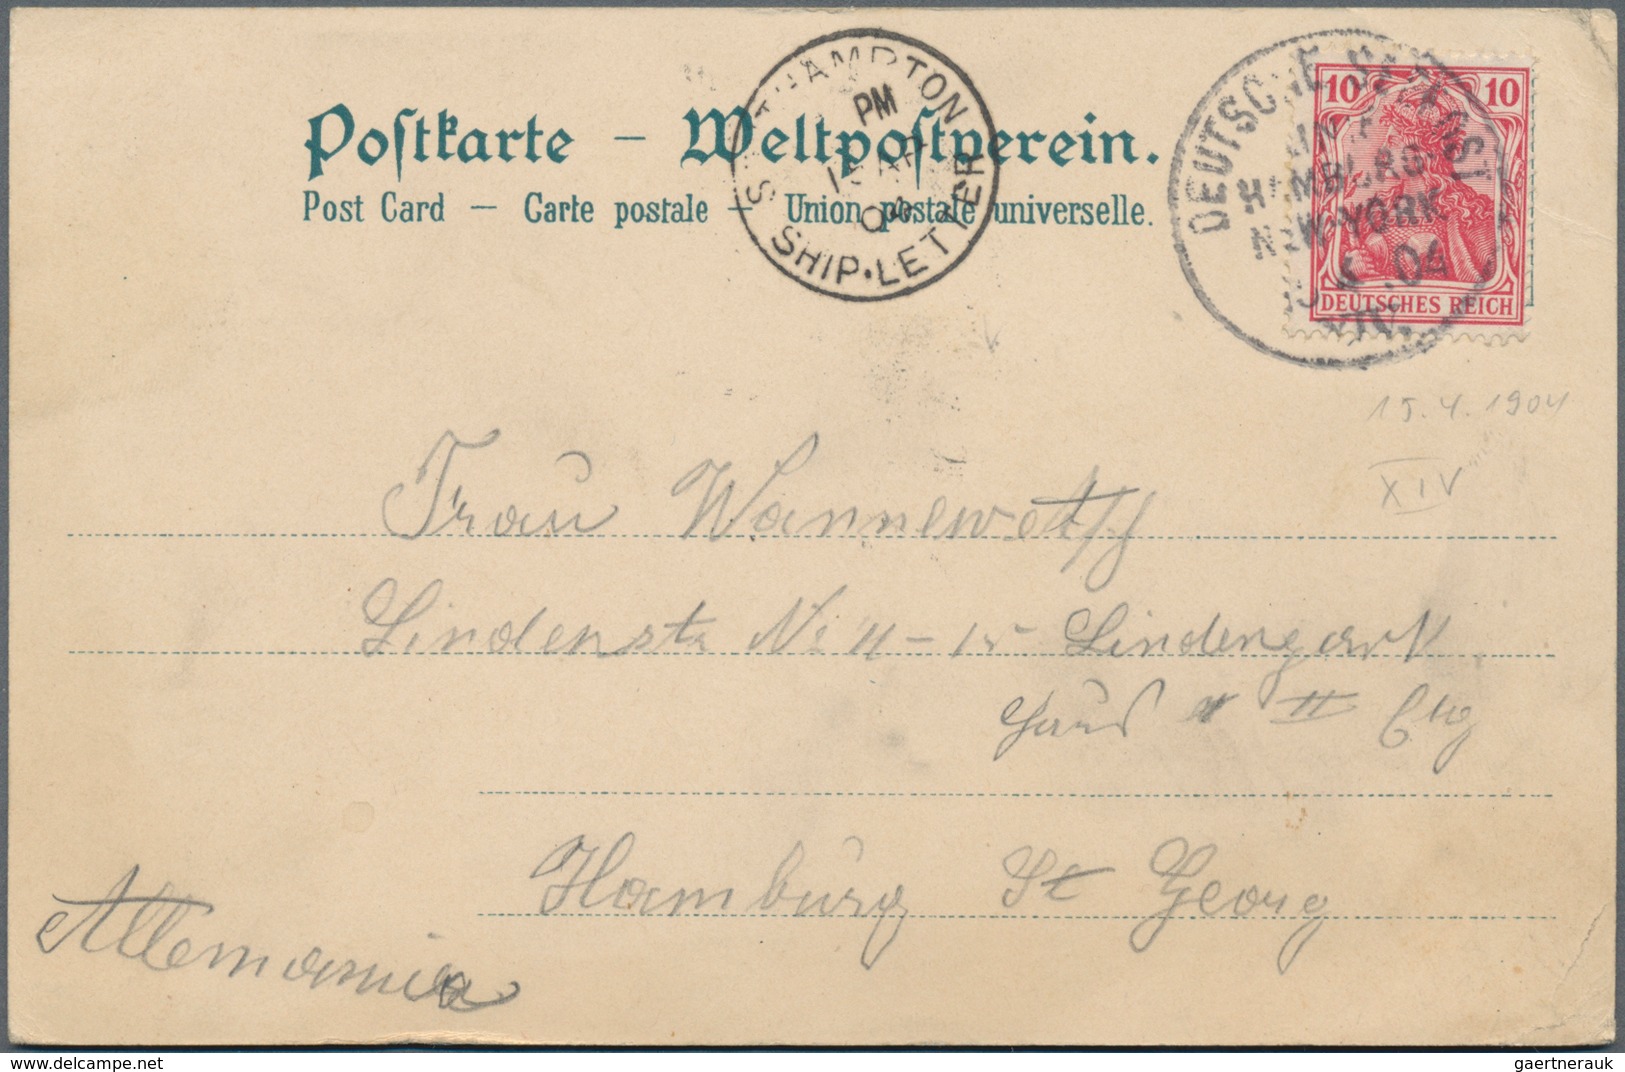 Postkarte – Weltpostverein.
Post Card – Carte postale – Union postale universelle.
SHIP·LETTER
PM
DEUTSCHE
HAMBURG-
NEW-YORK
04
XIV.
10 10
DEUTSCHES REICH
15.4.1904
XIV
Frau Wannewetsch
Lindenstr No 11-15 Lindenpark
Haus II Etg
Hamburg St Georg
Allemania
gaertnerauk